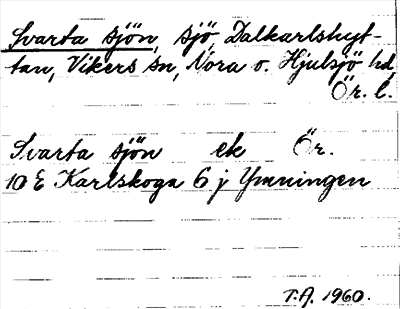 Svarta sjön, sjö, Dalkarlshyt-
tan, Vikers sn, Nora o. Hjulsjö hd,
Ör. l.
Svarta sjön ek Ör.
10 E Karlskoga 6 j Ymningen
T.A. 1960.